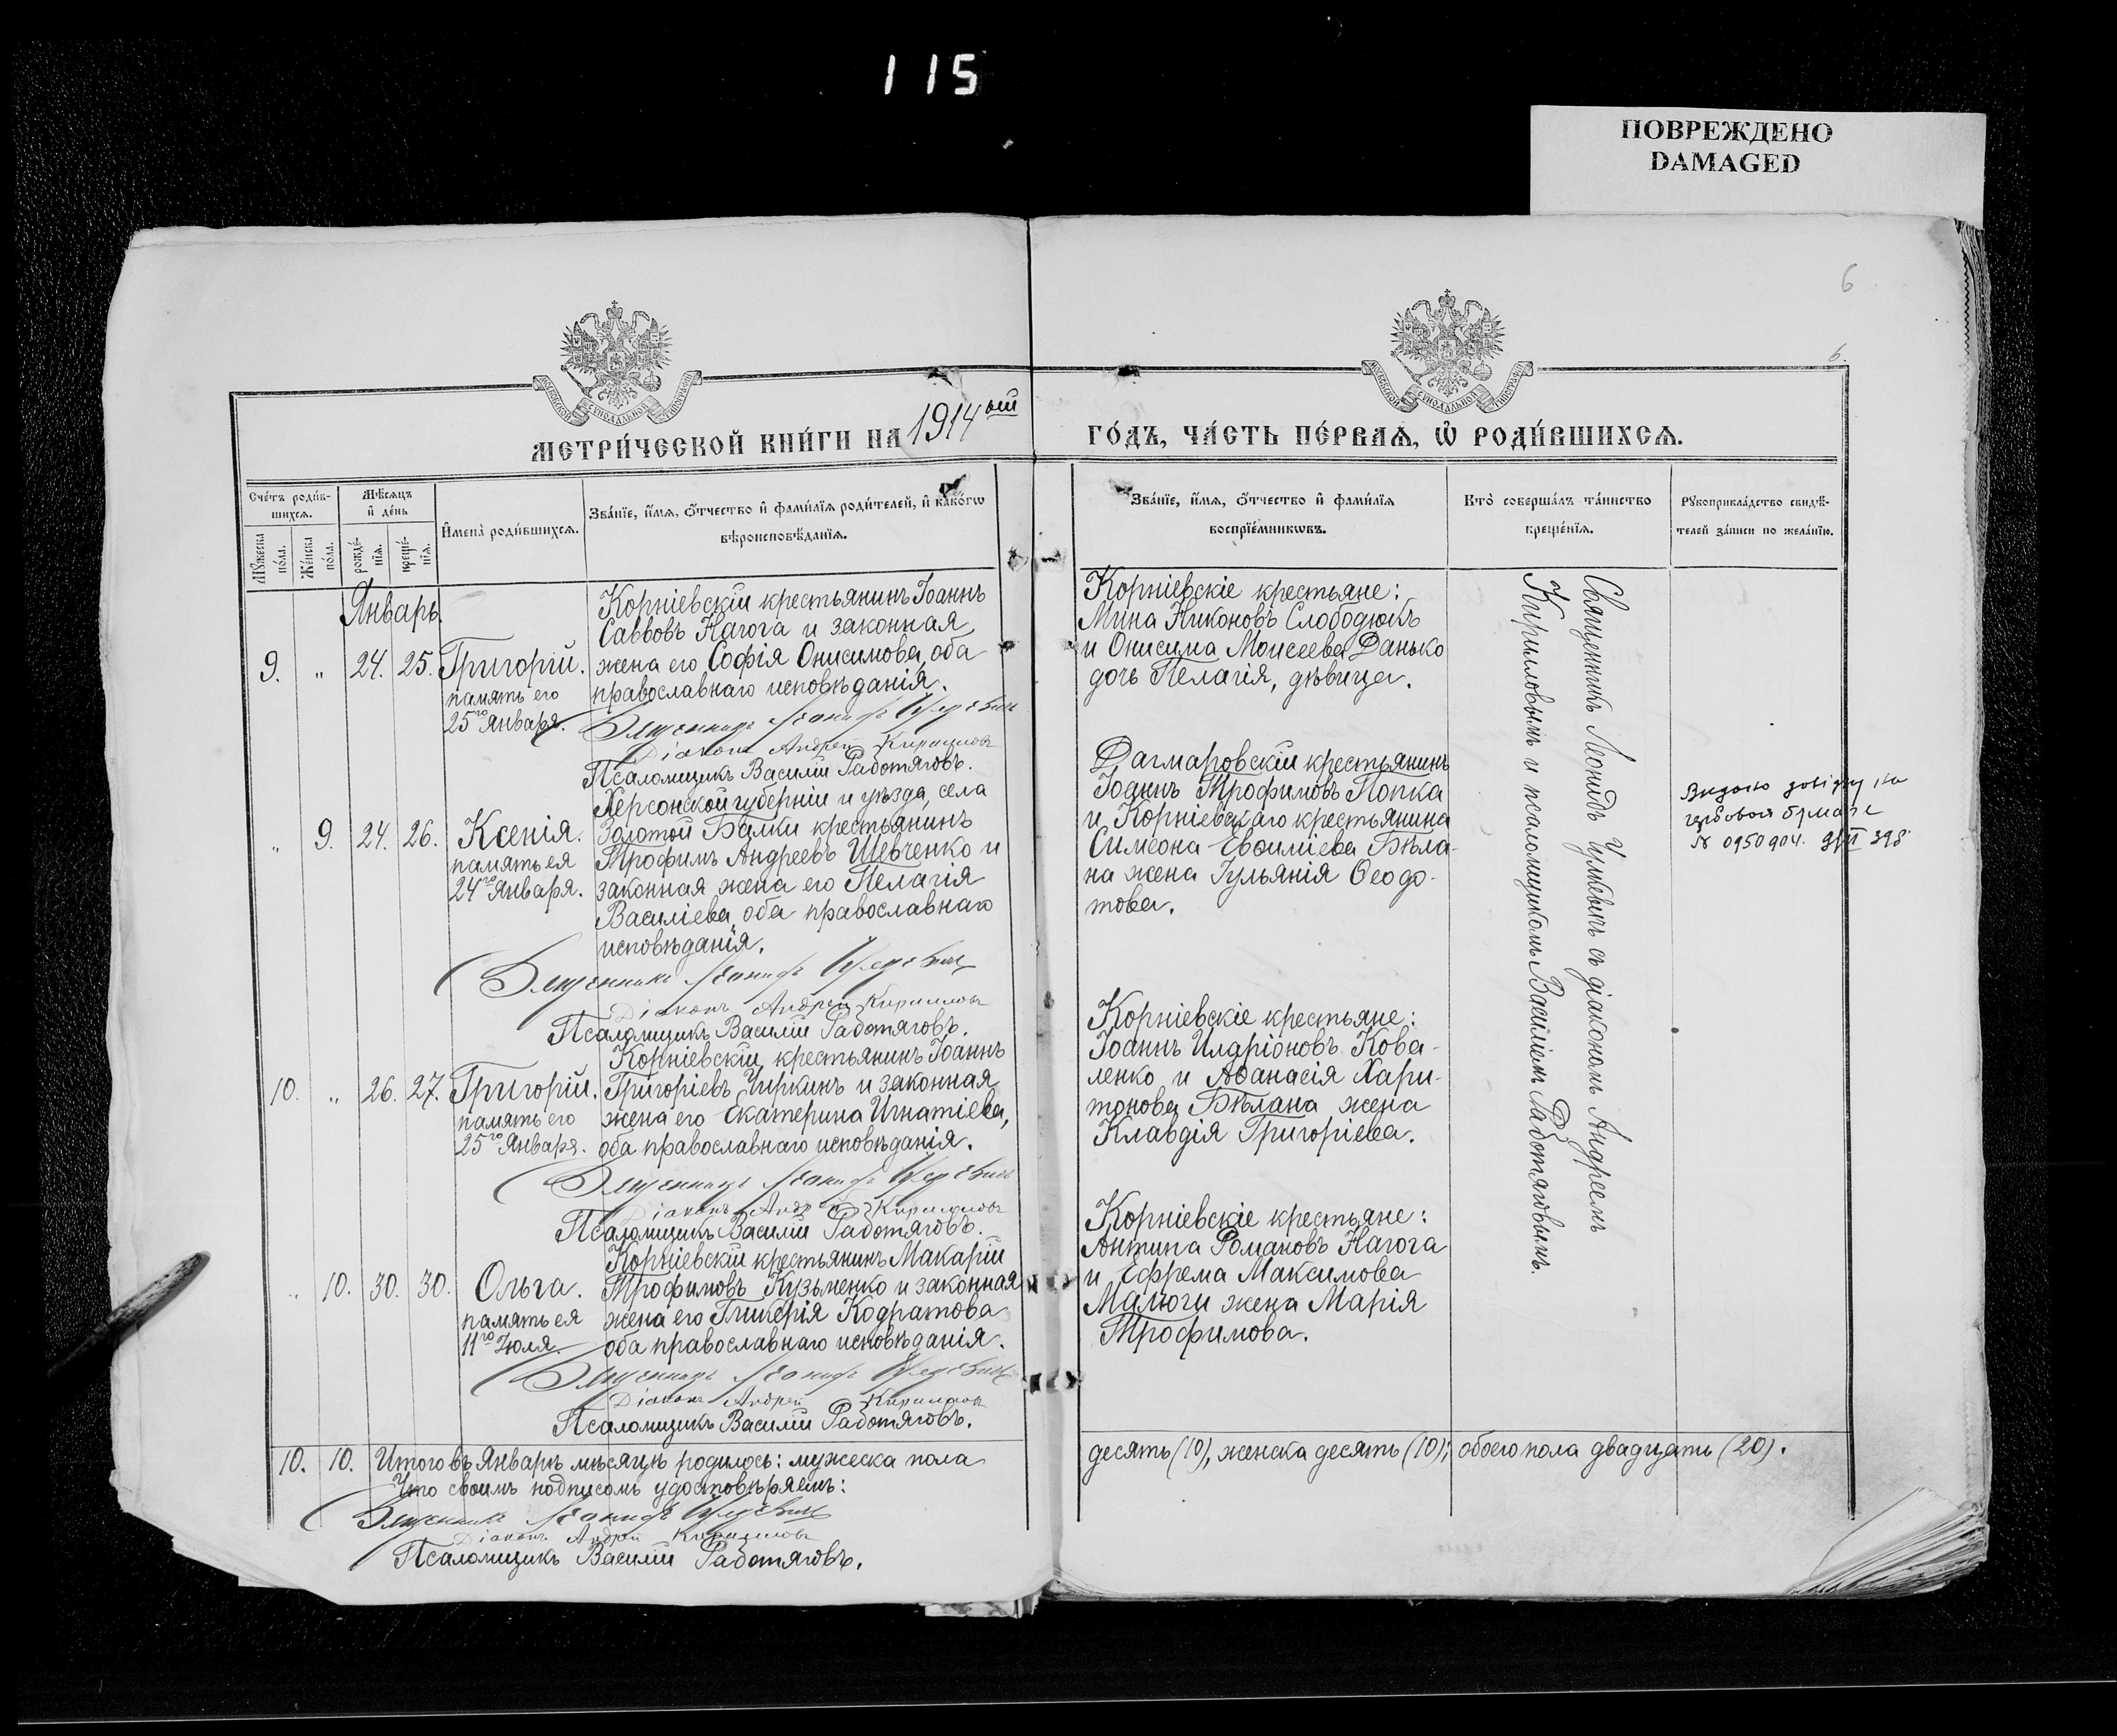 115
ПОВРЕЖДЕНО
DAMAGED
6
6.
МОСКОВСКОЙ СѴНОДАЛЬНОЙ ТИПОГРАФІИ
МОСКОВСКОЙ СѴНОДАЛЬНОЙ ТИПОГРАФІИ
МЕТРИ́ЧЕСКОЙ КНИ́ГИ НА 1914ый
ГО́ДЪ, ЧА́СТЬ ПЕ́РВАѦ, Ѽ РОДИ́ВШИХСѦ.
Сче́тъ роди́в-
шихсѧ.
Мꙋ́жеска по́ла.
Же́нска по́ла.
Мѣ́сѧцъ
и҆ де́нь
рожде́-
нїѧ.
креще́-
нїѧ.
И҆мена̀ роди́вшихсѧ.
Зва́нїе, и҆́мѧ, ѻ҆́тчество и҆ фами́лїѧ роди́телей, и҆ како́гѡ
вѣроисповѣ́данїѧ.
Зва́нїе, и҆́мѧ, ѻ҆́тчество и҆ фами́лїѧ
воспрїе́мникѡвъ.
Кто̀ соверша́лъ та́инство
креще́нїѧ.
Рꙋкоприкла́дство свидѣ́-
телей за́писи по жела́нїю.
Январь
9. „ 24. 25. Григорій.
память его
25го Января.
Корніевскій крестьянинъ Іоаннъ
Саввовъ Нагога и законная
жена его Софія Онисимова, оба
православнаго исповѣданія.
Священникъ Леонидъ
Діаконъ Андрей Кирилловъ
Псаломщикъ Василій Работяговъ.
Корніевскіе крестьяне:
Мина Никоновъ Слободюкъ
и Онисима Моисеева Данько
дочь Пелагія, дѣвица.
„ 9. 24. 26. Ксенія.
память ея
24го Января.
Херсонской губерніи и уѣзда, села
Золотой Балки крестьянинъ
Трофимъ Андреевъ Шевченко и
законная жена его Пелагія
Василіева, оба православнаго
исповѣданія.
Священникъ Леонидъ
Діаконъ Андрей Кирилловъ
Псаломщикъ Василій Работяговъ.
Дагмаровскій крестьянинъ
Іоаннъ Трофимовъ Попка
и Корніевскаго крестьянина
Симеона Евсиліева Бѣла-
на жена Іульянія Ѳеодо-
това.
№ 0950904.
10. „ 26. 27. Григорій.
память его
25го Января.
Корніевскій крестьянинъ Іоаннъ
Григоріевъ Чиркинъ и законная
жена его Екатерина Игнатіева,
оба православнаго исповѣданія.
Священникъ Леонидъ
Діаконъ Андрей Кирилловъ
Псаломщикъ Василій Работяговъ.
Корніевскіе крестьяне:
Іоаннъ Иларіоновъ Кова-
ленко и Аѳанасія Хари-
тонова Бѣлана жена
Клавдія Григоріева.
„ 10. 30. 30. Ольга.
память ея
11го Іюля.
Корніевскій крестьянинъ Макарій
Трофимовъ Кузьменко и законная
жена его Гликерія Кодратова
оба православнаго исповѣданія.
Священникъ Леонидъ
Діаконъ Андрей Кирилловъ
Псаломщикъ Василій Работяговъ.
Корніевскіе крестьяне:
Антипа Романовъ Нагога
и Ефрема Максимова
Малюги жена Марія
Трофимова.
Священникъ Леонидъ съ діакономъ Андреемъ
Кирилловымъ и псаломщикомъ Василіемъ Работяговымъ.
10. 10. Итого въ Январѣ мѣсяцѣ родилось: мужеска пола
десять (10), женска десять (10); обоего пола двадцать (20).
Что своимъ подписомъ удостовѣряемъ:
Священникъ Леонидъ
Діаконъ Андрей Кирилловъ
Псаломщикъ Василій Работяговъ.